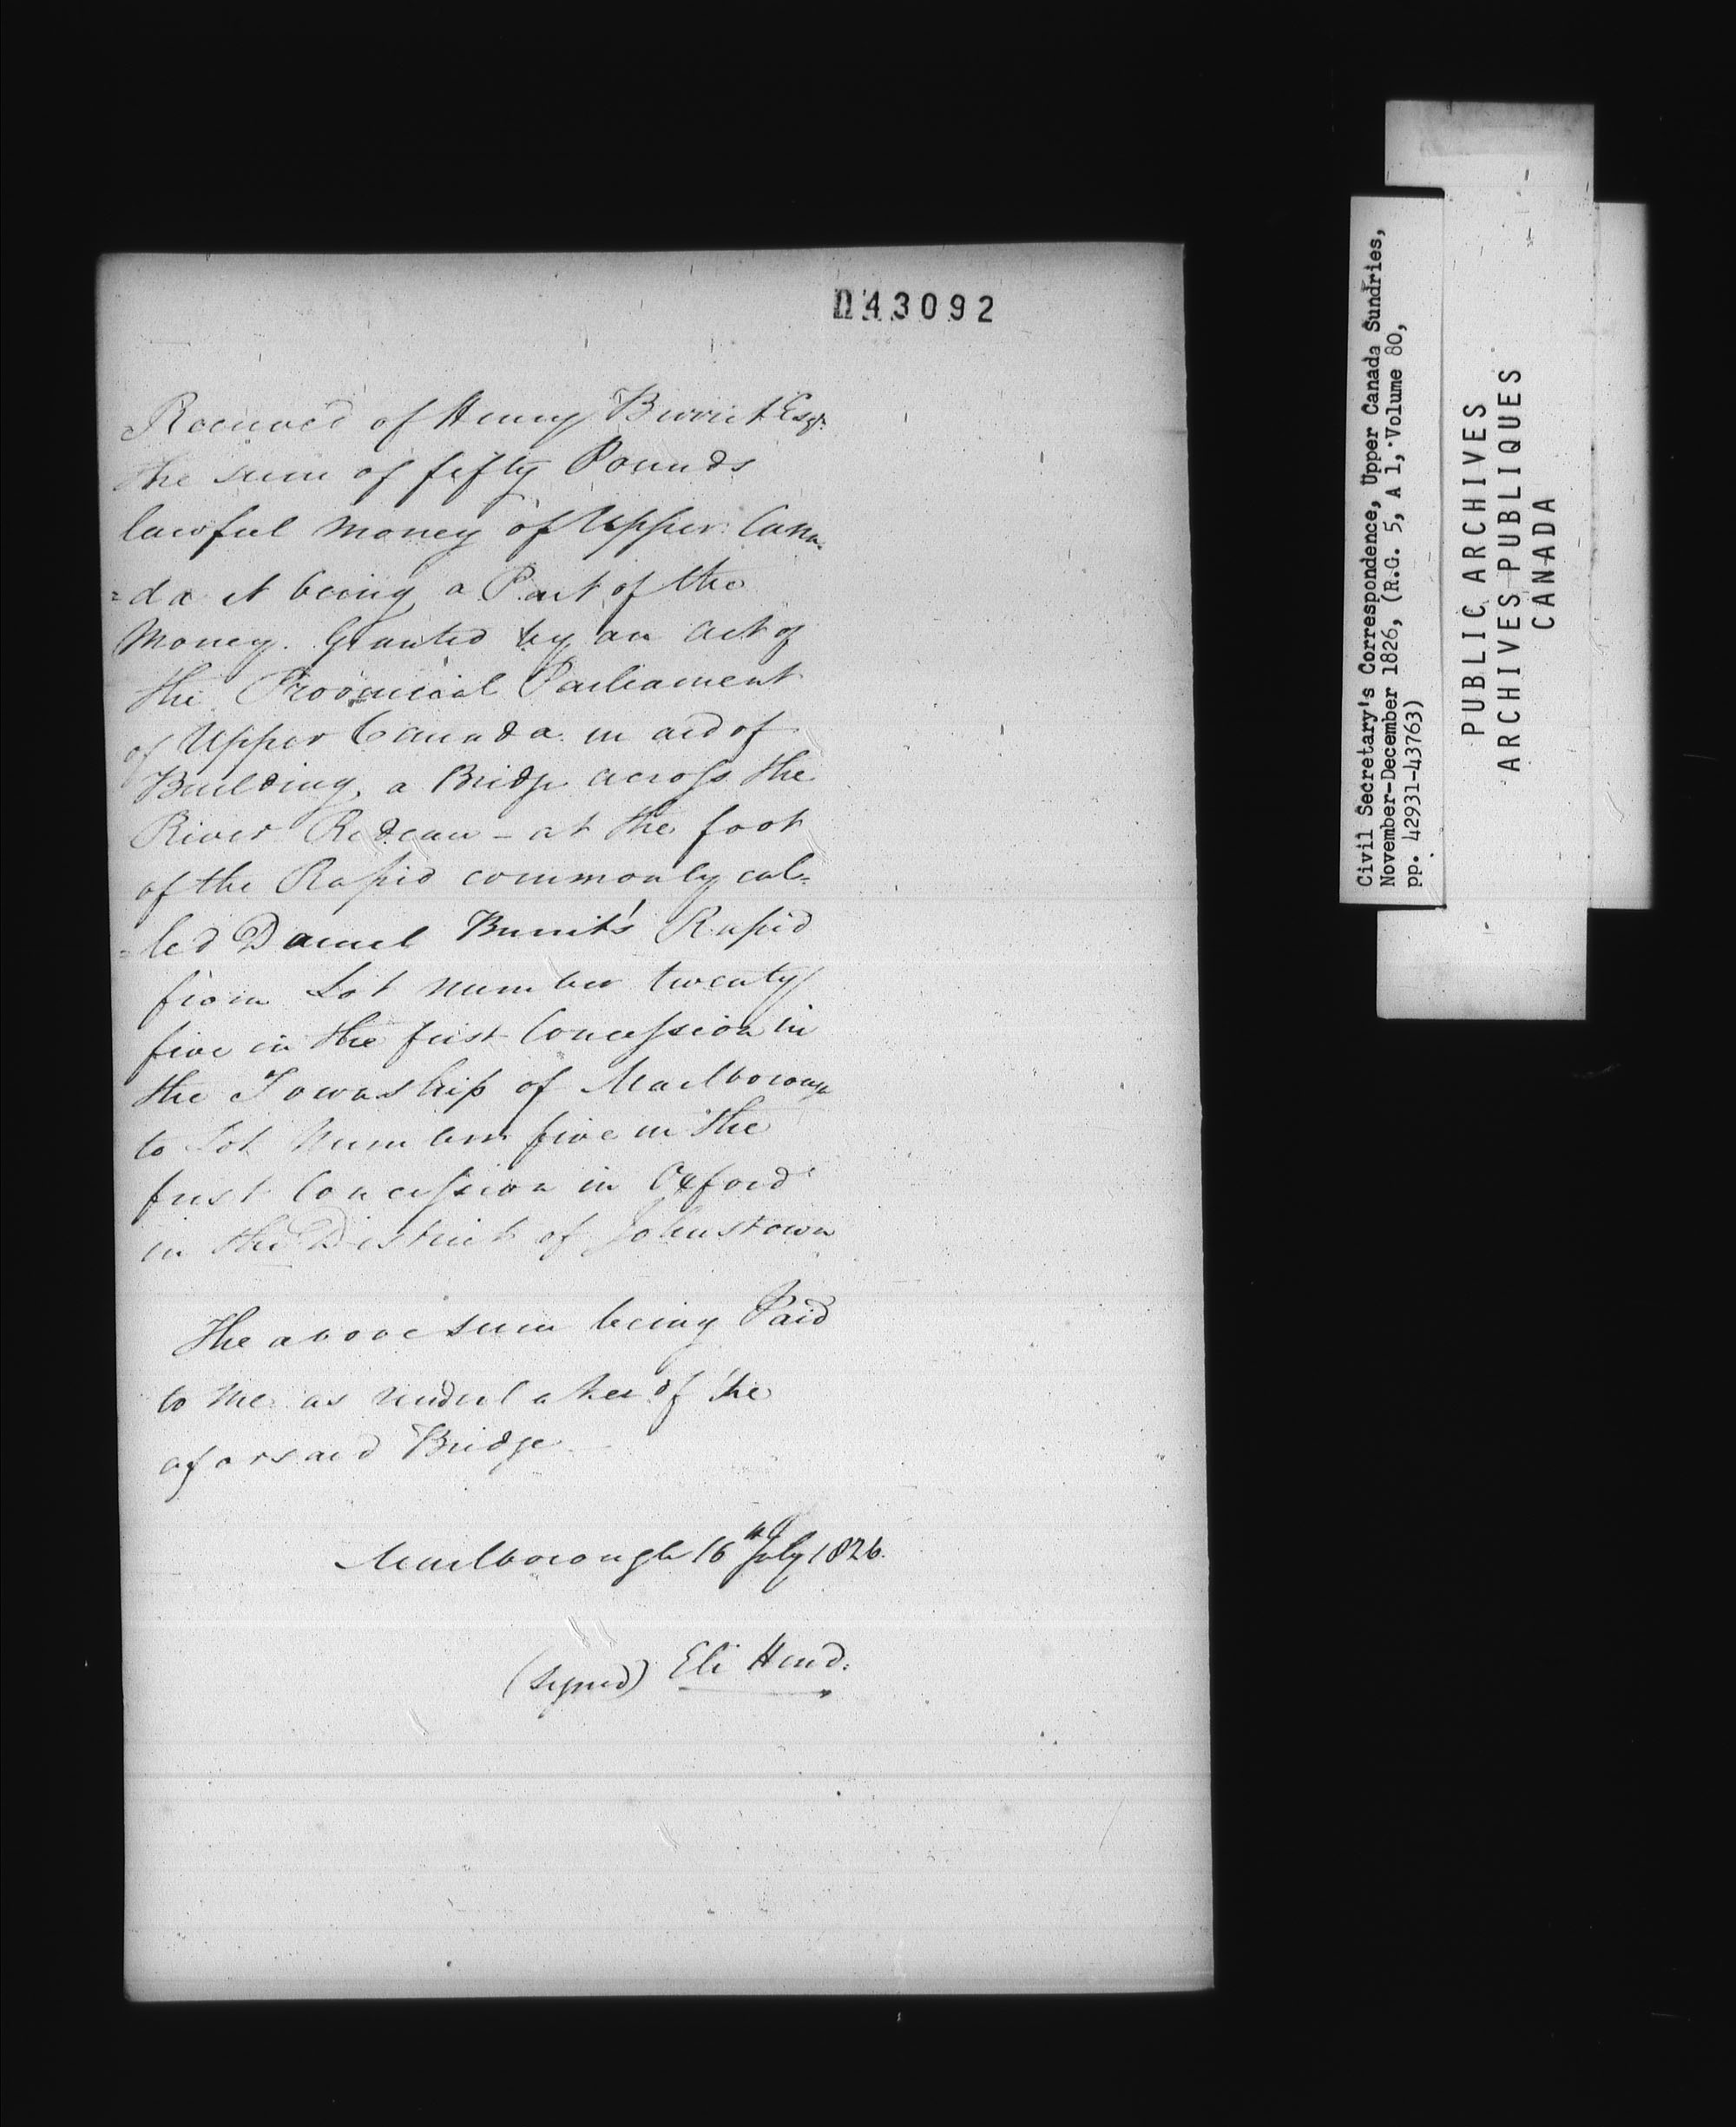 043092
Received of Henry Burrit Esqr.
the sum of fifty Pounds
lawful money of Upper Cana-
=da it being a Part of the
Money Granted by an act of
the Provincial Parliament
of Upper Canada in aid of
Building a Bridge across the
River Redeau - at the foot
of the Rapid commonly cal=
=led Daniel Burrit's Rapid
from Lot number twenty
five in the first Concession in
the Township of Marlborough
to Lot Number five in the
first Concession in Oxford
in the District of Johnstown
The above sum being Paid
to me as undertaker of the
aforsaid Bridge
Marlborough 16th July 1826.
(signed) Eli Hurd.
Civil Secretary's Correspondence, Upper Canada Sundries,
November-December 1826, (R.G. 5, A 1, Volume 80,
pp. 42931-43763)
PUBLIC ARCHIVES
ARCHIVES PUBLIQUES
CANADA